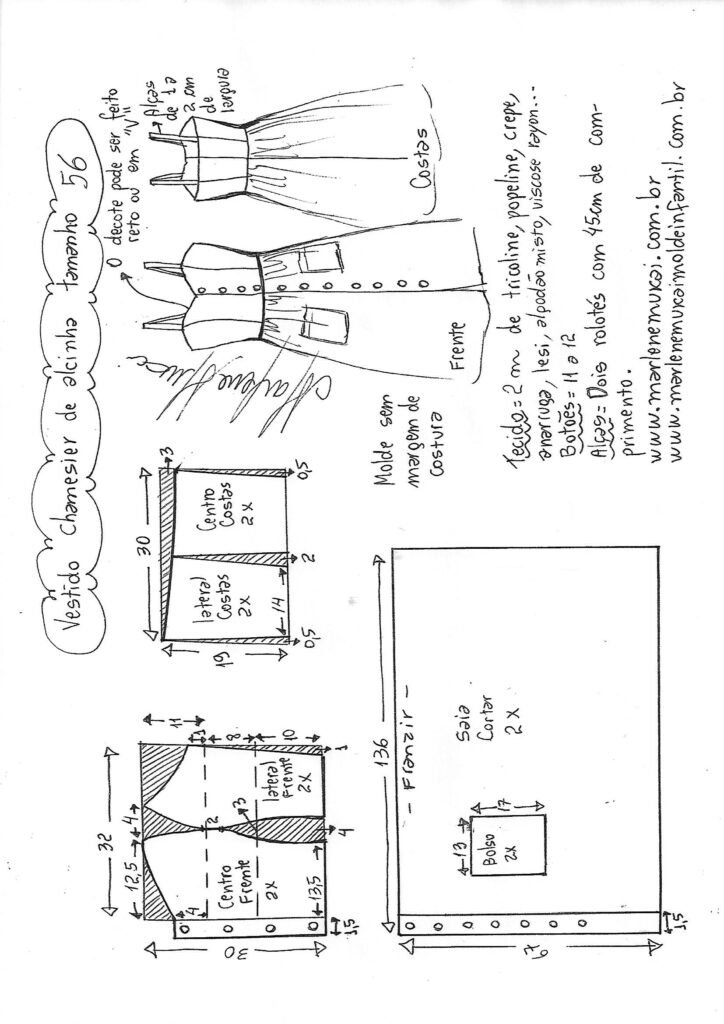 Vestido chamesier de alcinha tamanho 56
32
12,5
4
11
4
Centro
Frente
2x
13,5
30
1,5
2
3
4
lateral
Frente
2x
1
8
10
1
30
3
19
lateral
Costas
2x
14
0,5
2
Centro
Costas
2x
0,5
O decote pode ser feito
reto ou em "V"
Alças
de 1 a
2 cm
de
largura
Frente
Costas
Molde sem
margem de
costura
136
- Franzir -
Saia
Cortar
2x
13
17
Bolso
2x
67
1,5
Tecido = 2 m de tricoline, popeline, crepe,
anarruga, lesi, algodão misto, viscose rayon...
Botões = 11 a 12
Alças = Dois rolotés com 45cm de com-
primento.
www.marlenemukai.com.br
www.marlenemukaimoldeinfantil.com.br